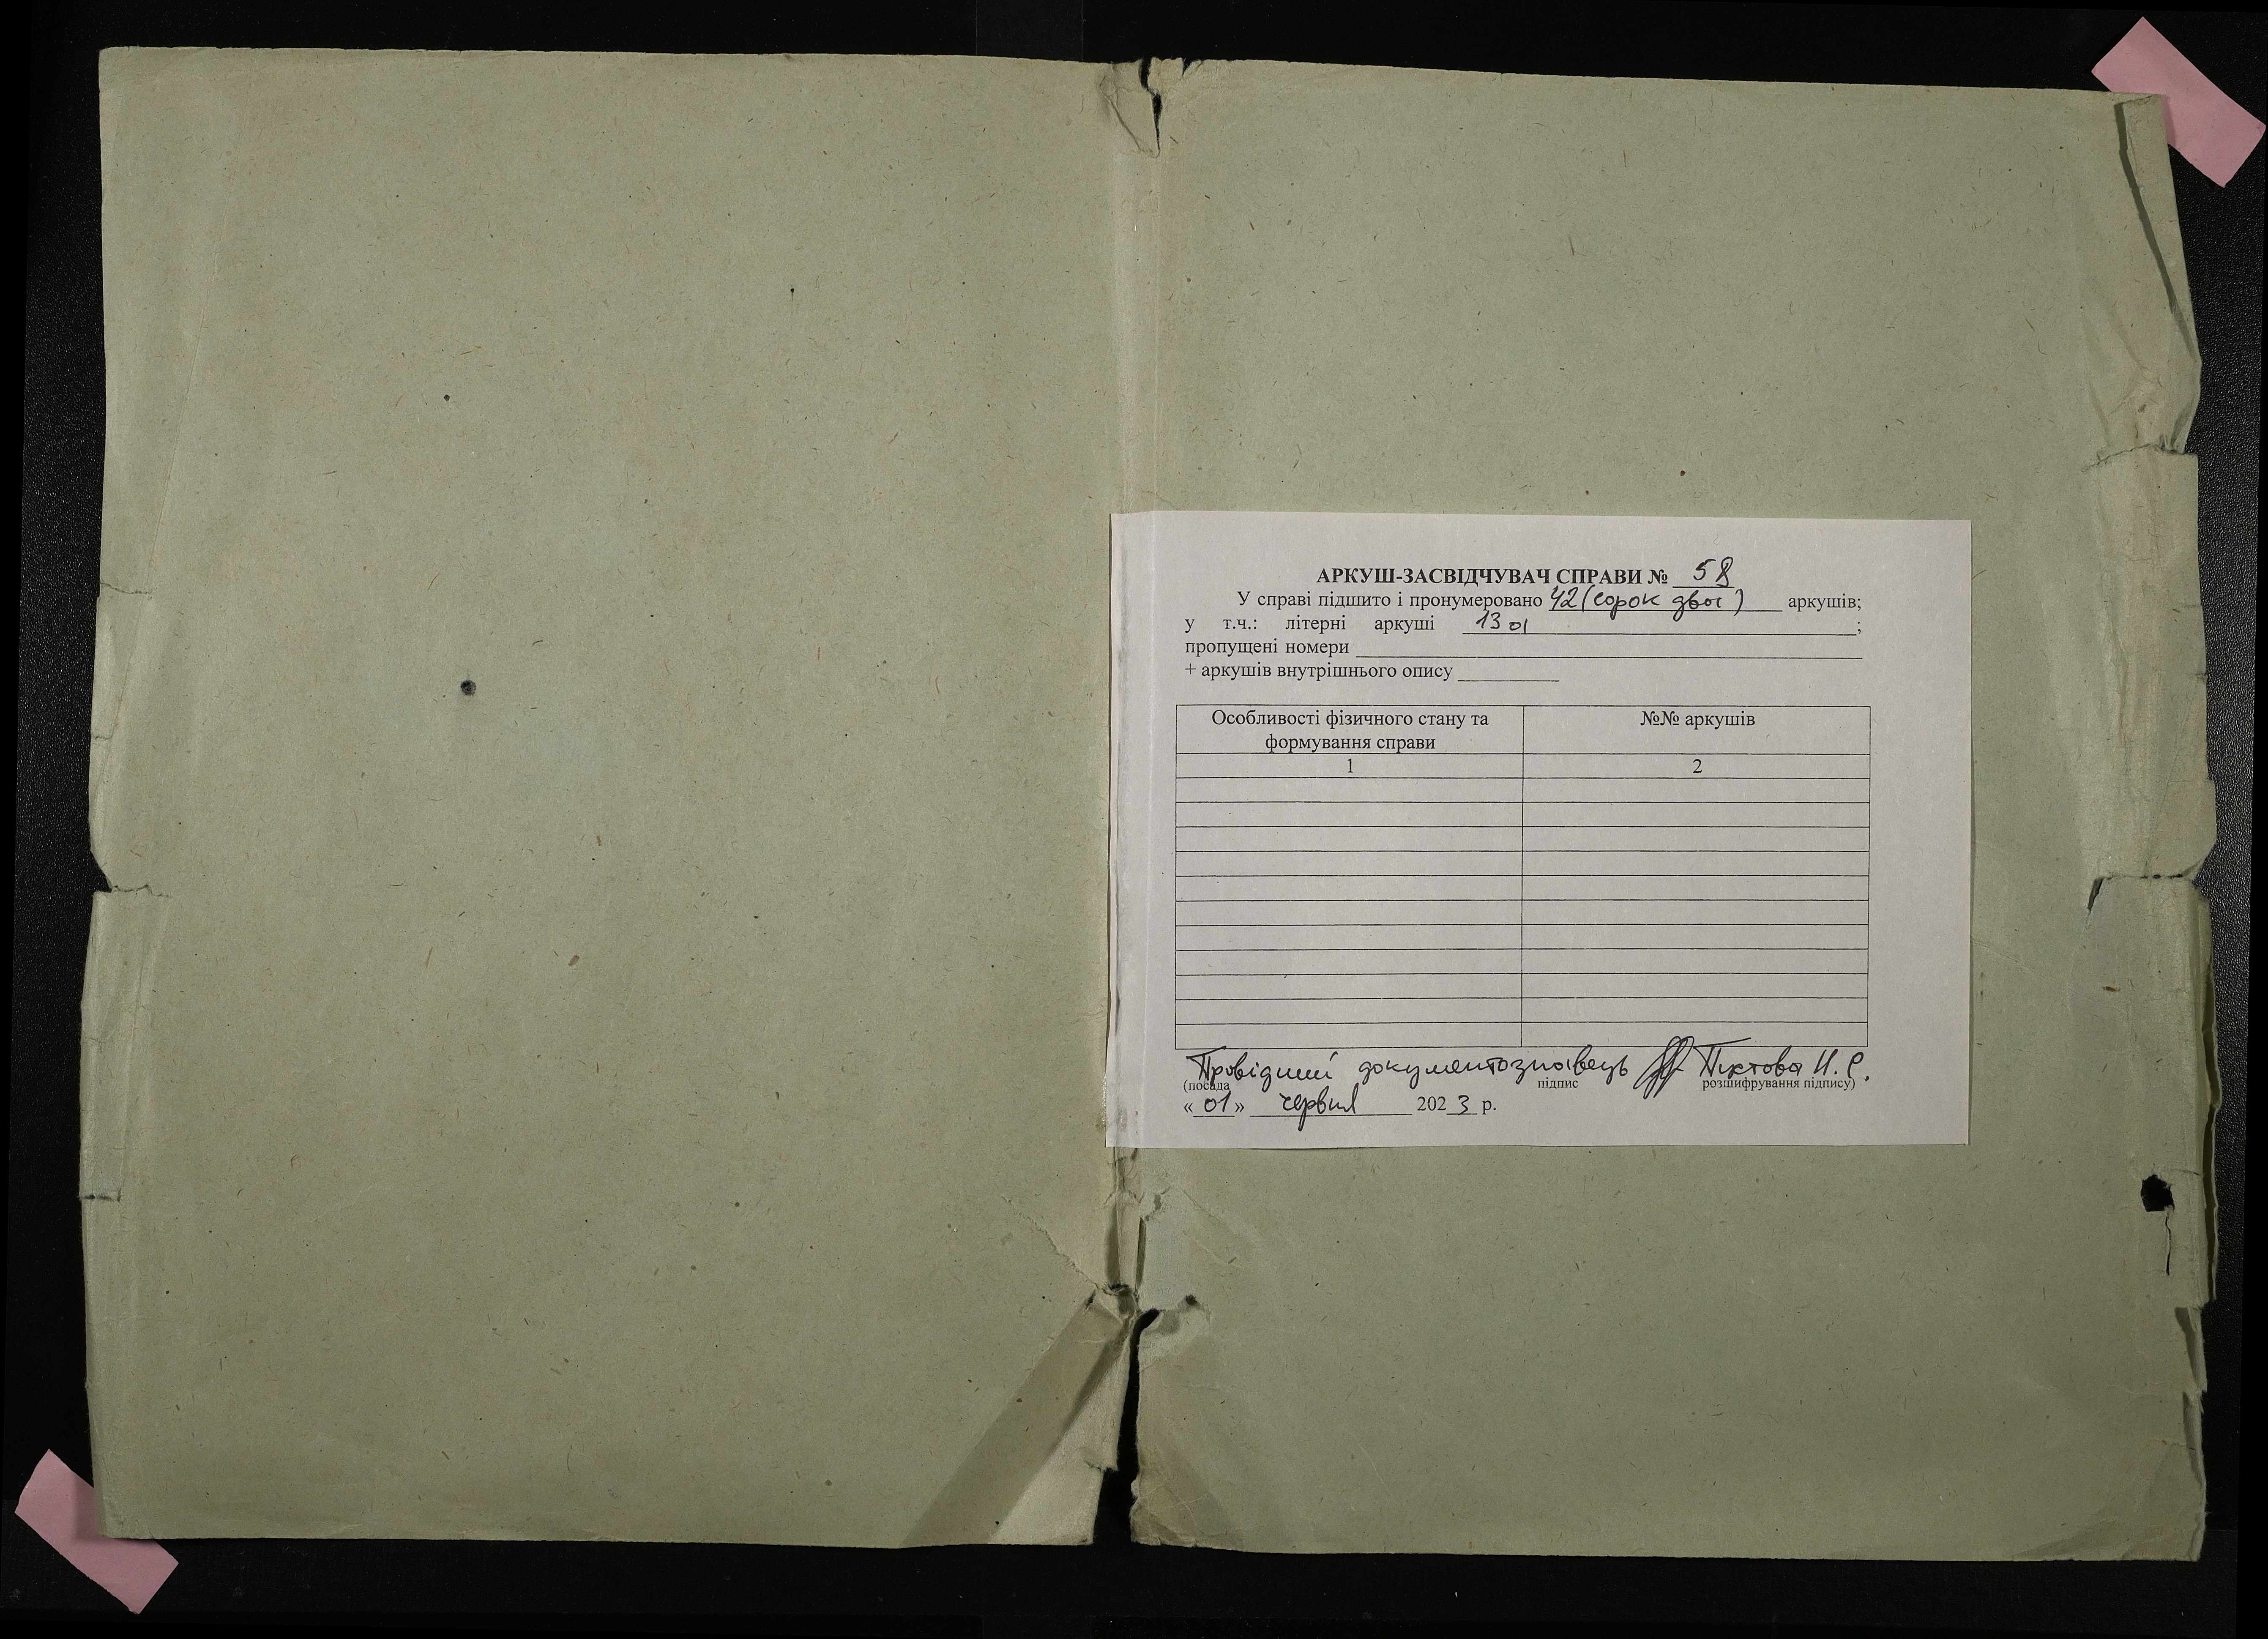 АРКУШ-ЗАСВІДЧУВАЧ СПРАВИ № 58
У справі підшито і пронумеровано 42 (сорок два) аркушів;
у т.ч.: літерні аркуші 13а;
пропущені номери
+ аркушів внутрішнього опису
Особливості фізичного стану та формування справи
№№ аркушів
1 2
Провідний документознавець
(посада підпис розшифрування підпису)
« 01 » червня 2023 р.